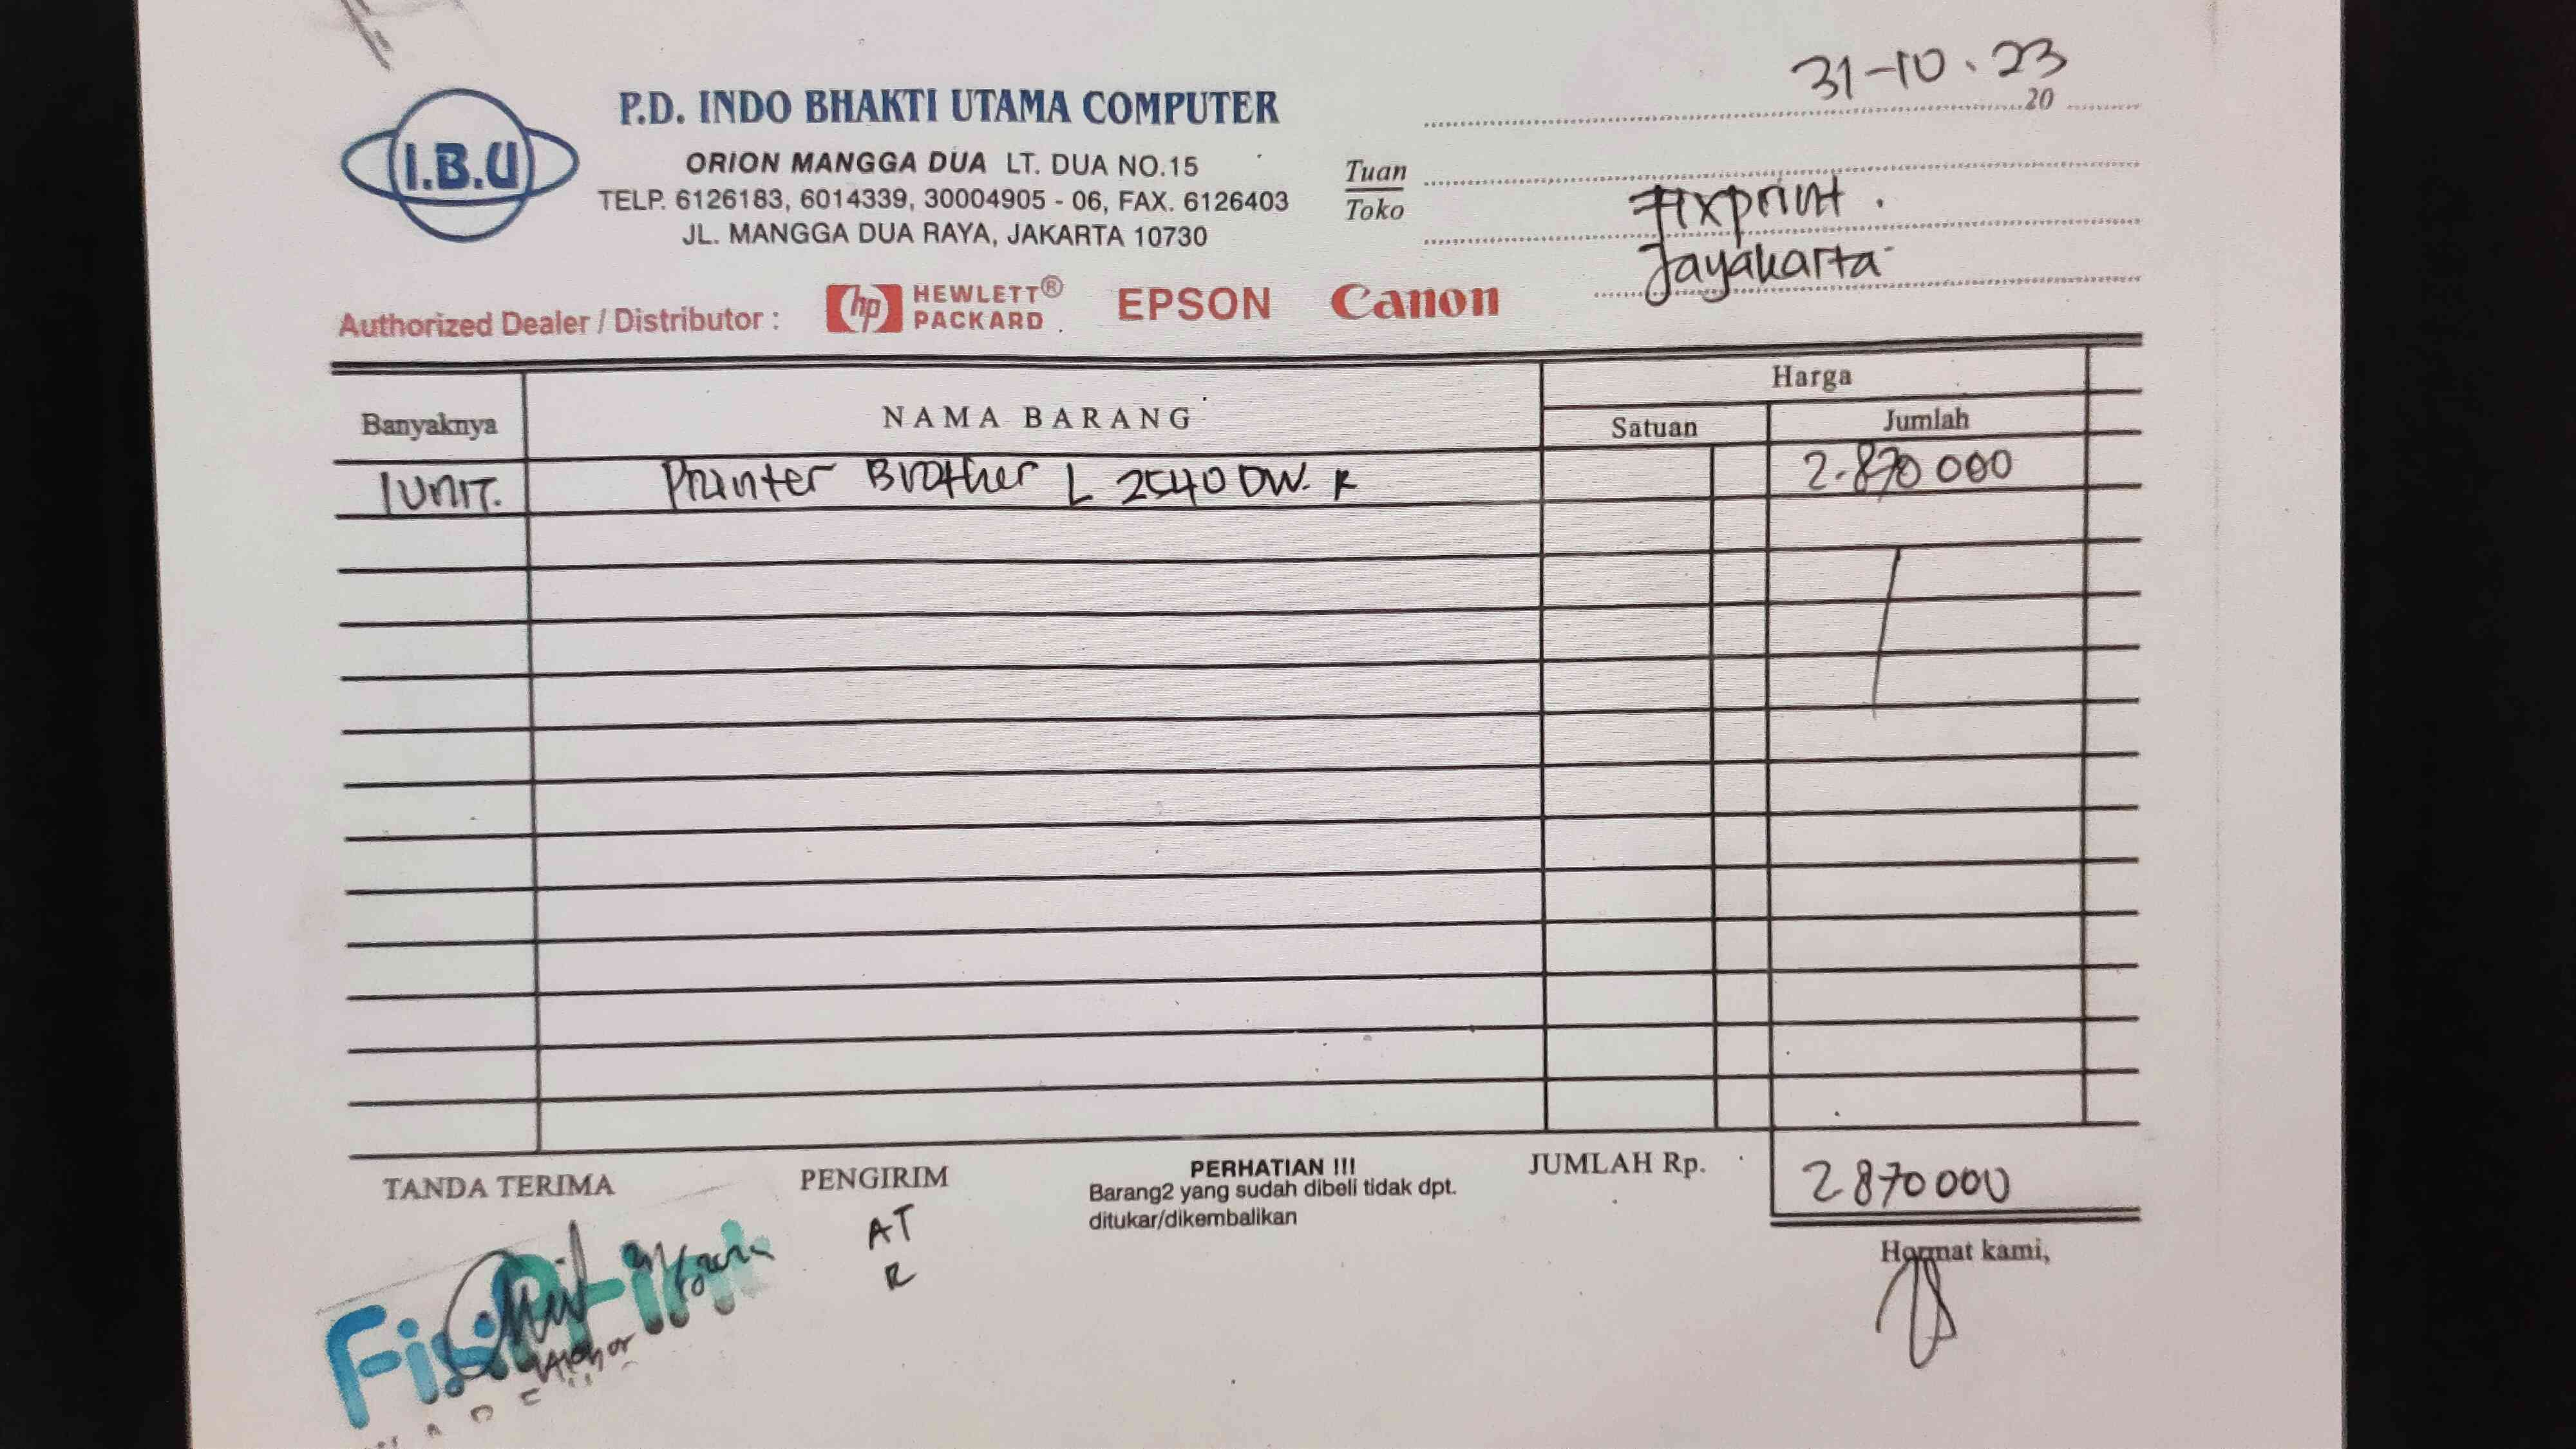 31-10.23
20
I.B.U
P.D. INDO BHAKTI UTAMA COMPUTER
ORION MANGGA DUA LT. DUA NO.15
TELP. 6126183, 6014339, 30004905 - 06, FAX. 6126403
JL. MANGGA DUA RAYA, JAKARTA 10730
Tuan
Toko
Fixprint.
Jayakarta
Authorized Dealer / Distributor : hp HEWLETT® PACKARD EPSON Canon
Banyaknya NAMA BARANG Harga
Satuan Jumlah
1 UNIT. Printer Brother L 2540 DW. R 2.870 000
TANDA TERIMA PENGIRIM
AT
R
PERHATIAN !!!
Barang2 yang sudah dibeli tidak dpt.
ditukar/dikembalikan
JUMLAH Rp. 2870000
Hormat kami,